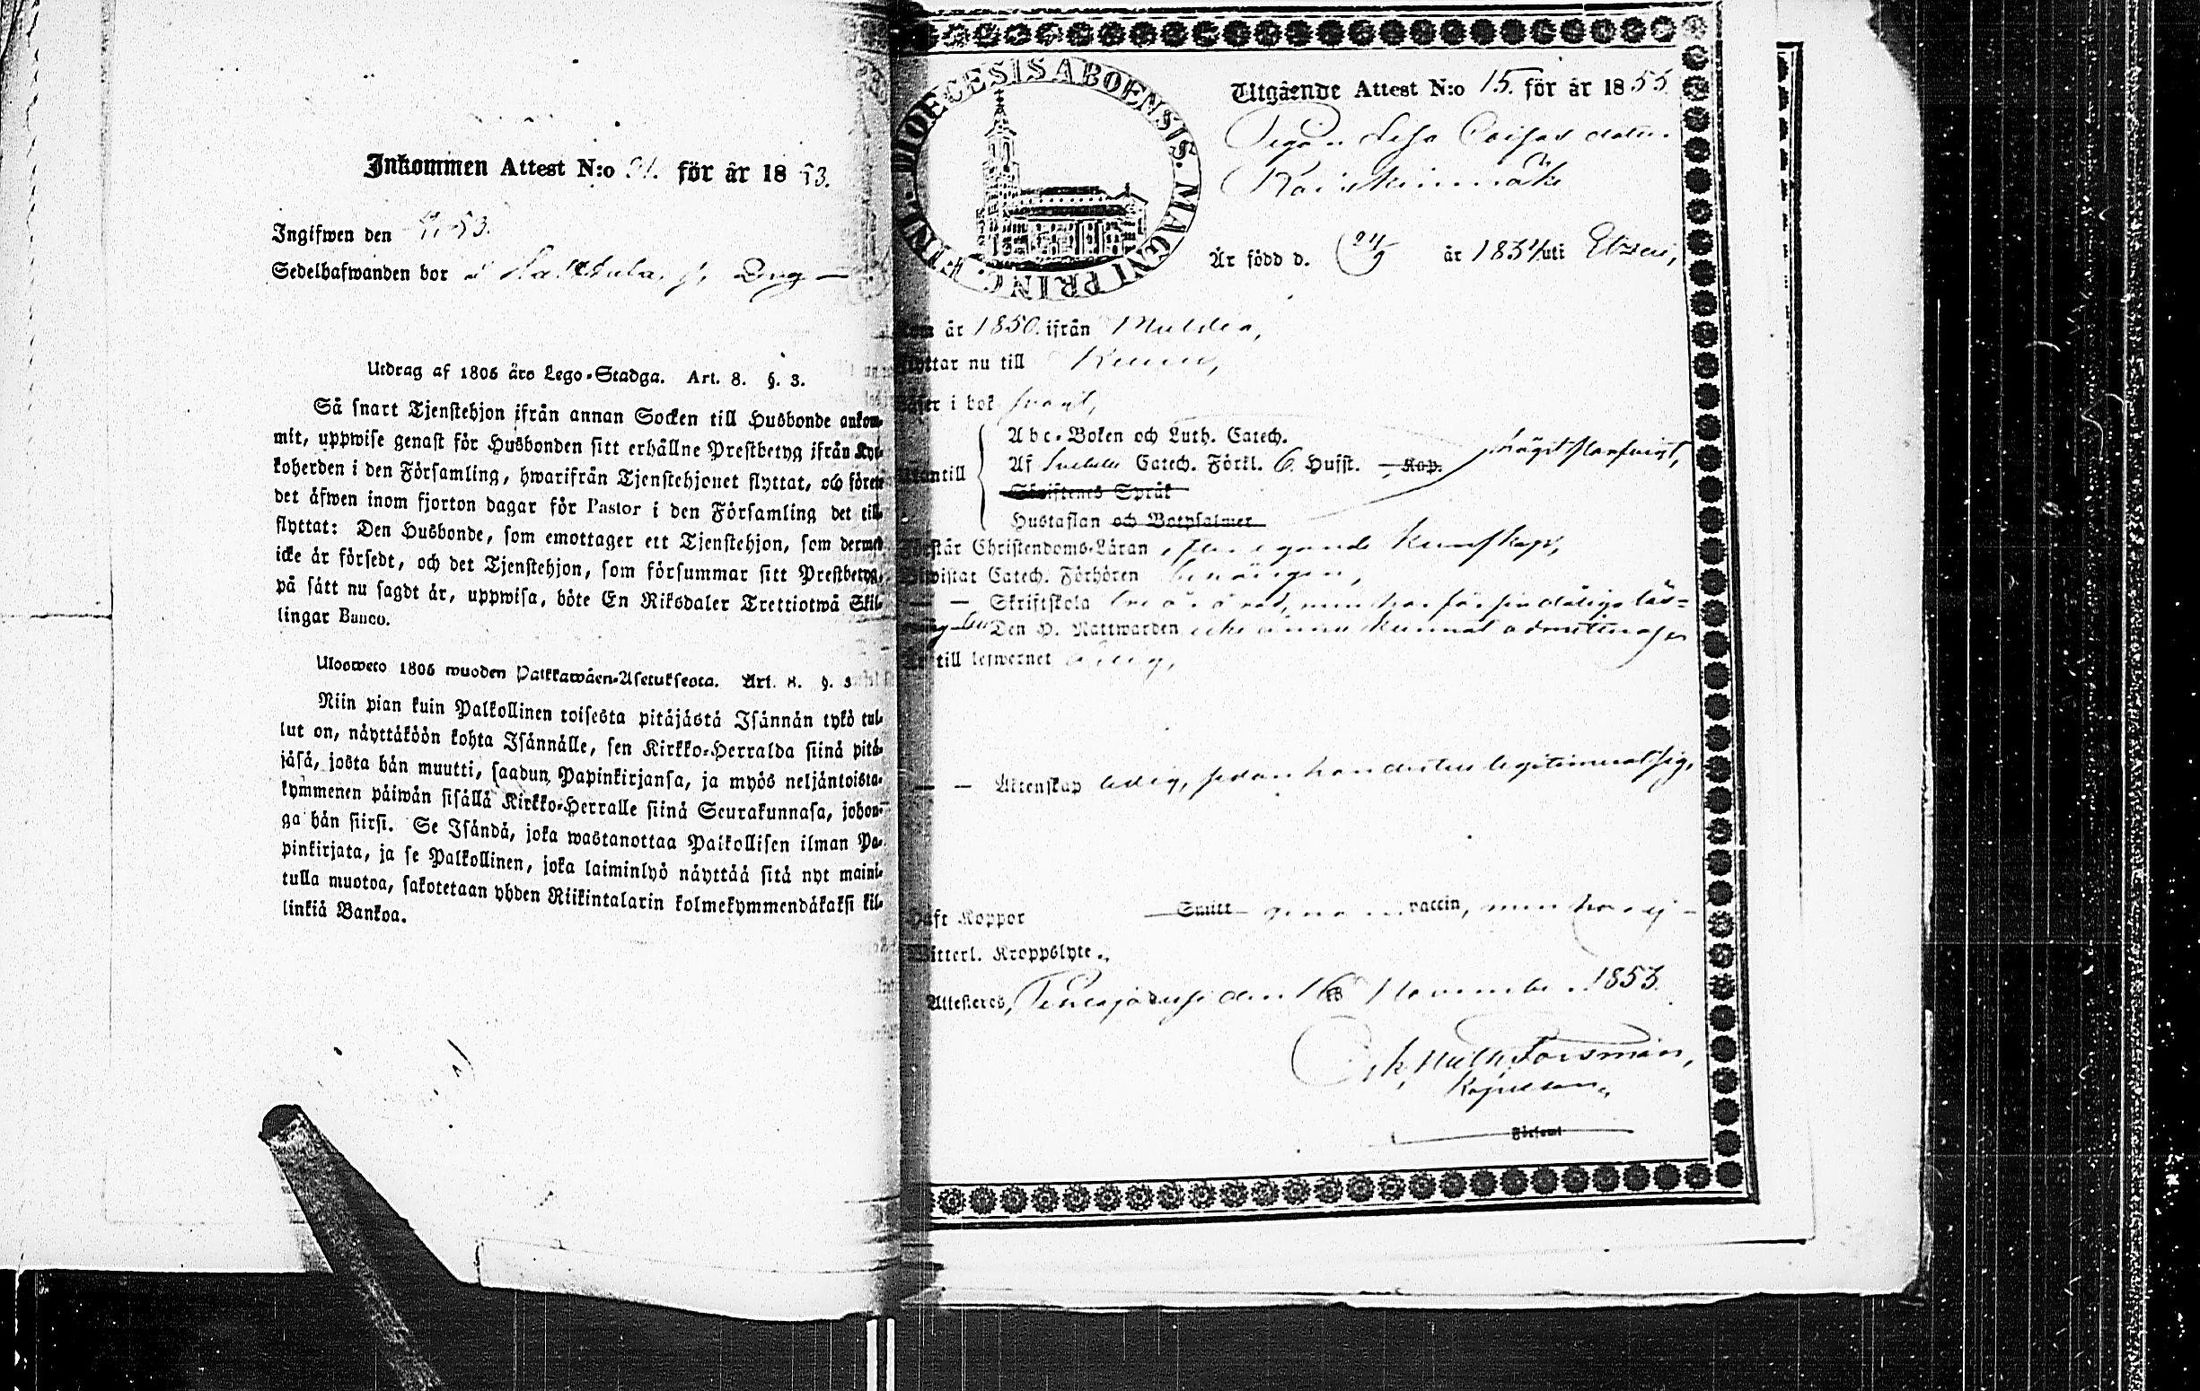 Inkommen Attest N:o 21. för år 1853.
Ingifwen den
Sedelhafwanden bor
Utdrag af 1805 års Lego-Stadga. Art. 8. §. 3.
Så snart Tjenstehjon ifrån annan Socken till Husbonde ankom-
mit, uppwise genast för Husbonden sitt erhållne Prestbetyg ifrån Kyr-
koherden i den Församling, hwarifrån Tjenstehjonet flyttat, och förete
det äfwen inom fjorton dagar för Pastor i den Församling det till-
flyttat: Den Husbonde, som emottager ett Tjenstehjon, som dermed
icke är försedt, och det Tjenstehjon, som försummar sitt Prestbetyg,
på sätt nu sagdt är, uppwisa, böte En Riksdaler Trettiotwå Skil-
lingar Banco.
Ulosweto 1805 wuoden Palkkawäen-Asetuksesta. Art. 8. §. 3
Niin pian kuin Palkollinen toisesta pitäjästä Isännän tykö tul-
lut on, näyttäköön kohta Isännälle, sen Kirkko-Herralda siinä pitä-
jäsä, josta hän muutti, saadun Papinkirjansa, ja myös neljäntoista-
kymmenen päiwän sisällä Kirkko-Herralle siinä Seurakunnasa, johon-
ga hän siirsi. Se Isändä, joka wastanottaa Palkollisen ilman Pa-
pinkirjata, ja se Palkollinen, joka laiminlyö näyttää sitä nyt maini-
tulla muotoa, sakotetaan yhden Riikintalarin kolmekymmendäkaksi kil-
linkiä Bankoa.
DIOECESIS ABOENSIS. MAGNI PRINC. FINL.
Utgående Attest N:o 15. för år 1853
Pigan Lisa Caisas dotter
Är född d. 24/9 år 1834 uti
Kom år 1850. ifrån
Flyttar nu till
Läser i bok swagt,
Abc-Boken och Luth. Catech.
Af Svebelii Catech. Förkl. 6. Hufst. Kop. någit flarfvigt,
Utantill
Skriftenes Språk
Hustaflan och Botpsalmer
Förstår Christendoms-Läran efter egande kunskap,
Bewistat Catech. Förhören
— — Skriftskola tre års råd, men har för sin dåliga läs-
Den H. Nattwarden icke ännu kunnat admitteras
Är till lefwernet ärlig,
— — Äktenskap ledig, sedan hon dertill legitimerat sig,
Haft Koppor Smitt genom vaccin, men har ej
Witterl. Kroppslyte.
Attesteres, den 16 November 1853.
Forsman,
Kapellan.
Församl.